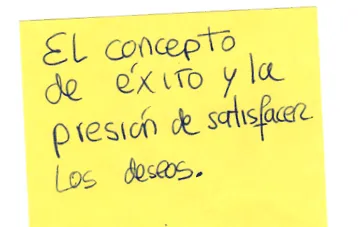 El concepto
de éxito y la
presión de satisfacer
los deseos.